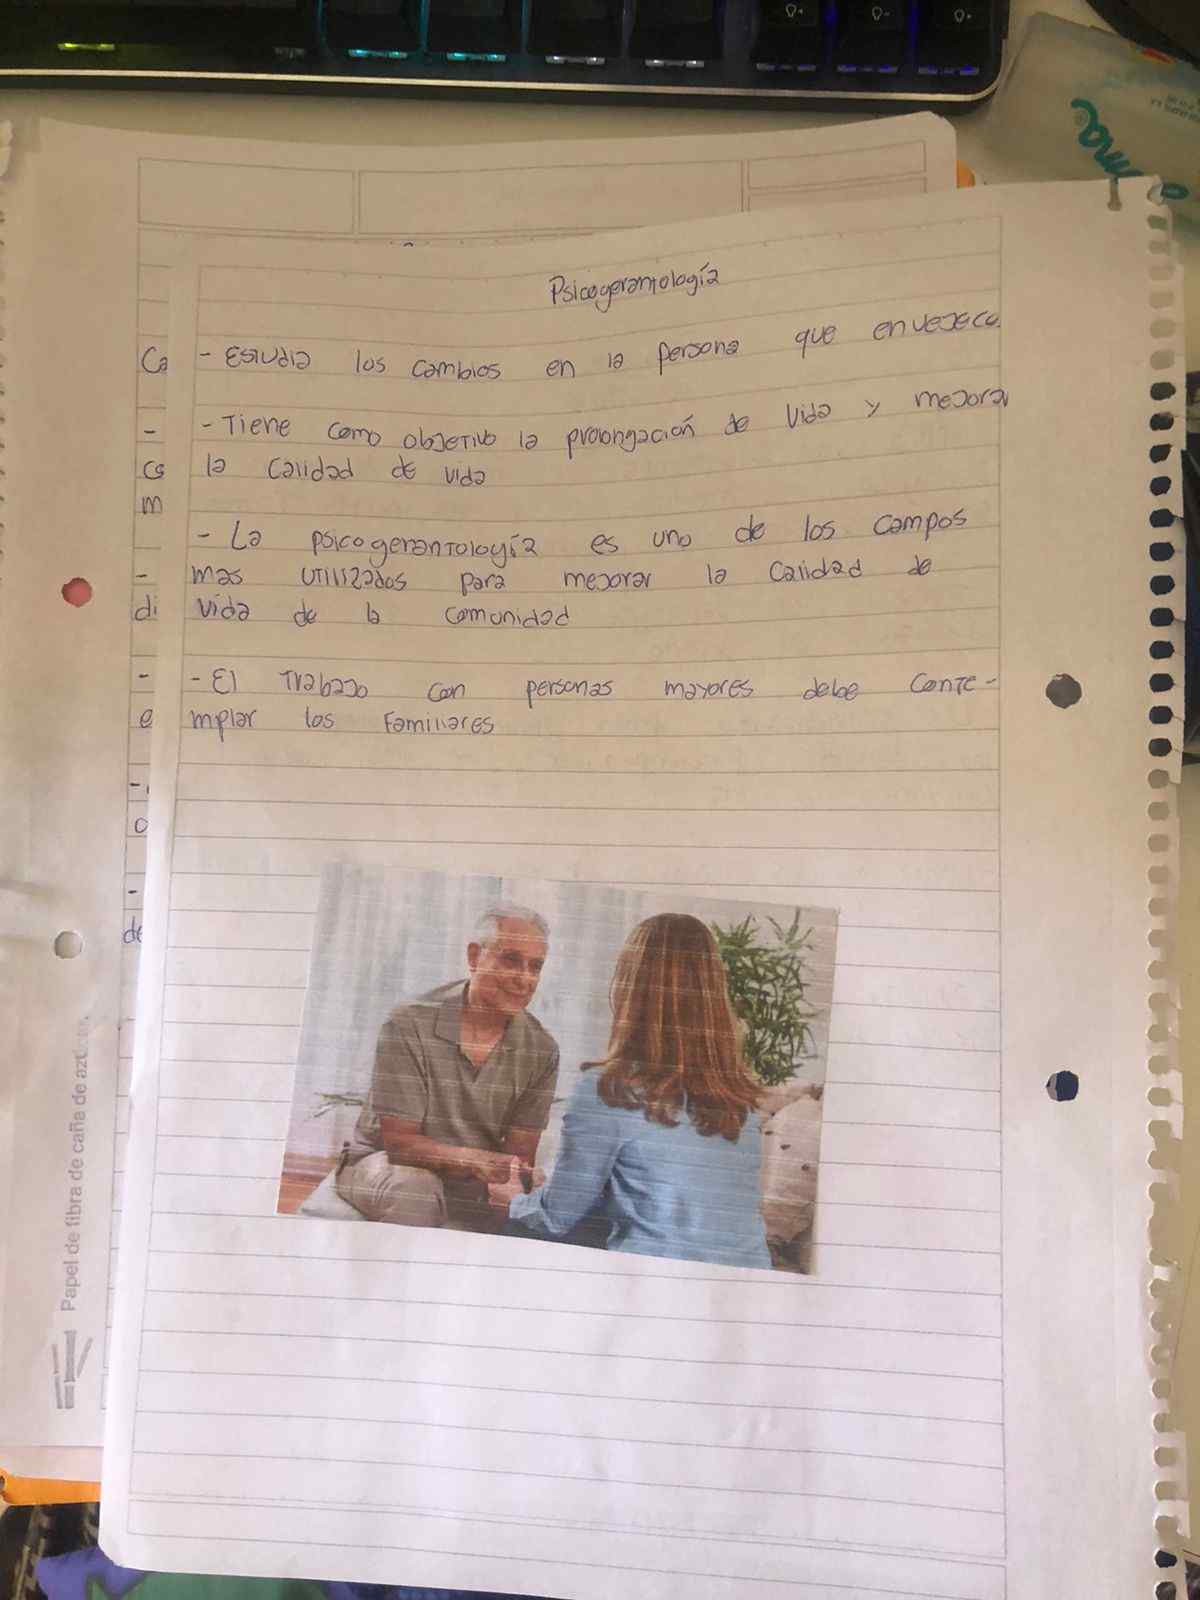 Psicogerantología
- Estudia los cambios en la persona que envejece.
- Tiene como objetivo la prolongación de vida y mejorar
la calidad de vida
- La psicogerantología es uno de los campos
mas utilizados para mejorar la calidad de
vida de la comunidad
- El trabajo con personas mayores debe conte-
mplar los familiares
Ca
-
cs
m
-
di
-
e
-
o
-
de
Papel de fibra de caña de azúcar